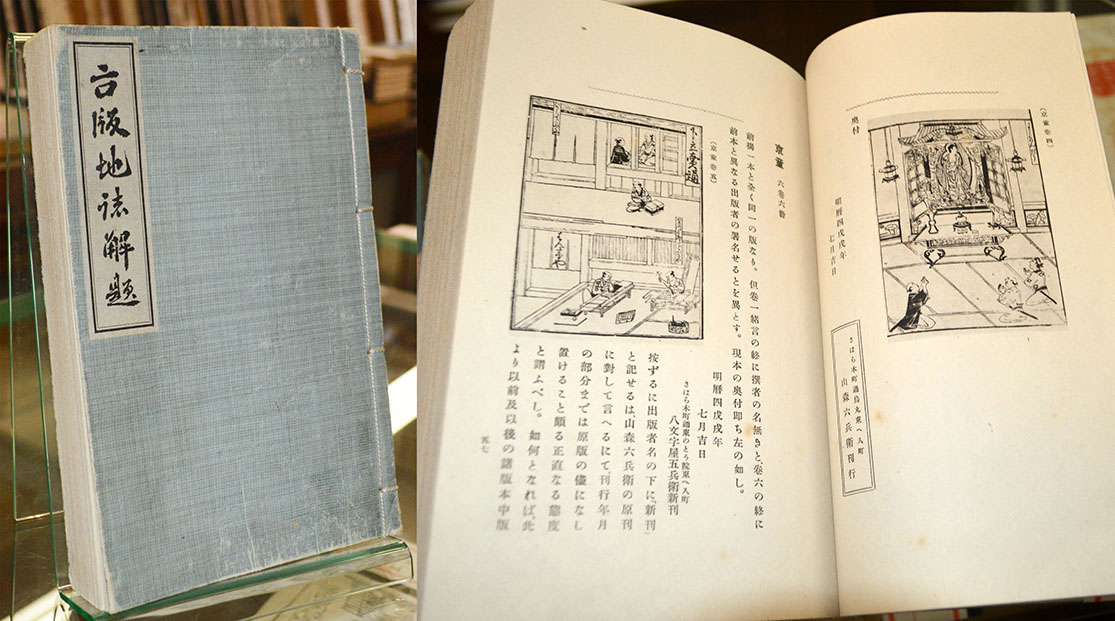 古版地誌解題
(京童卷四)
奥付
明曆四戊戌年
七月吉日
さはら木町通烏丸東へ入町
山森六兵衛刊行
京童 六卷六冊
前揭一本と全く同一の版なり。但卷一緒言の終に撰者の名無きと、卷六の終に
前本と異なる出版者の署名せるとを異とす。現本の奥付即ち左の如し。
明曆四戊戌年
七月吉日
さはら木町通東のとう院東へ入町
八文字屋五兵衛新刊
(京童卷五)
按ずるに出版者名の下に「新刊」
と記せるは、山森六兵衛の原刊
に對して言へるにて、刊行年月
の部分までは原版の儘になし
置けること頗る正直なる態度
と謂ふべし。如何となれば、此
より以前及以後の諸版本中版
五七